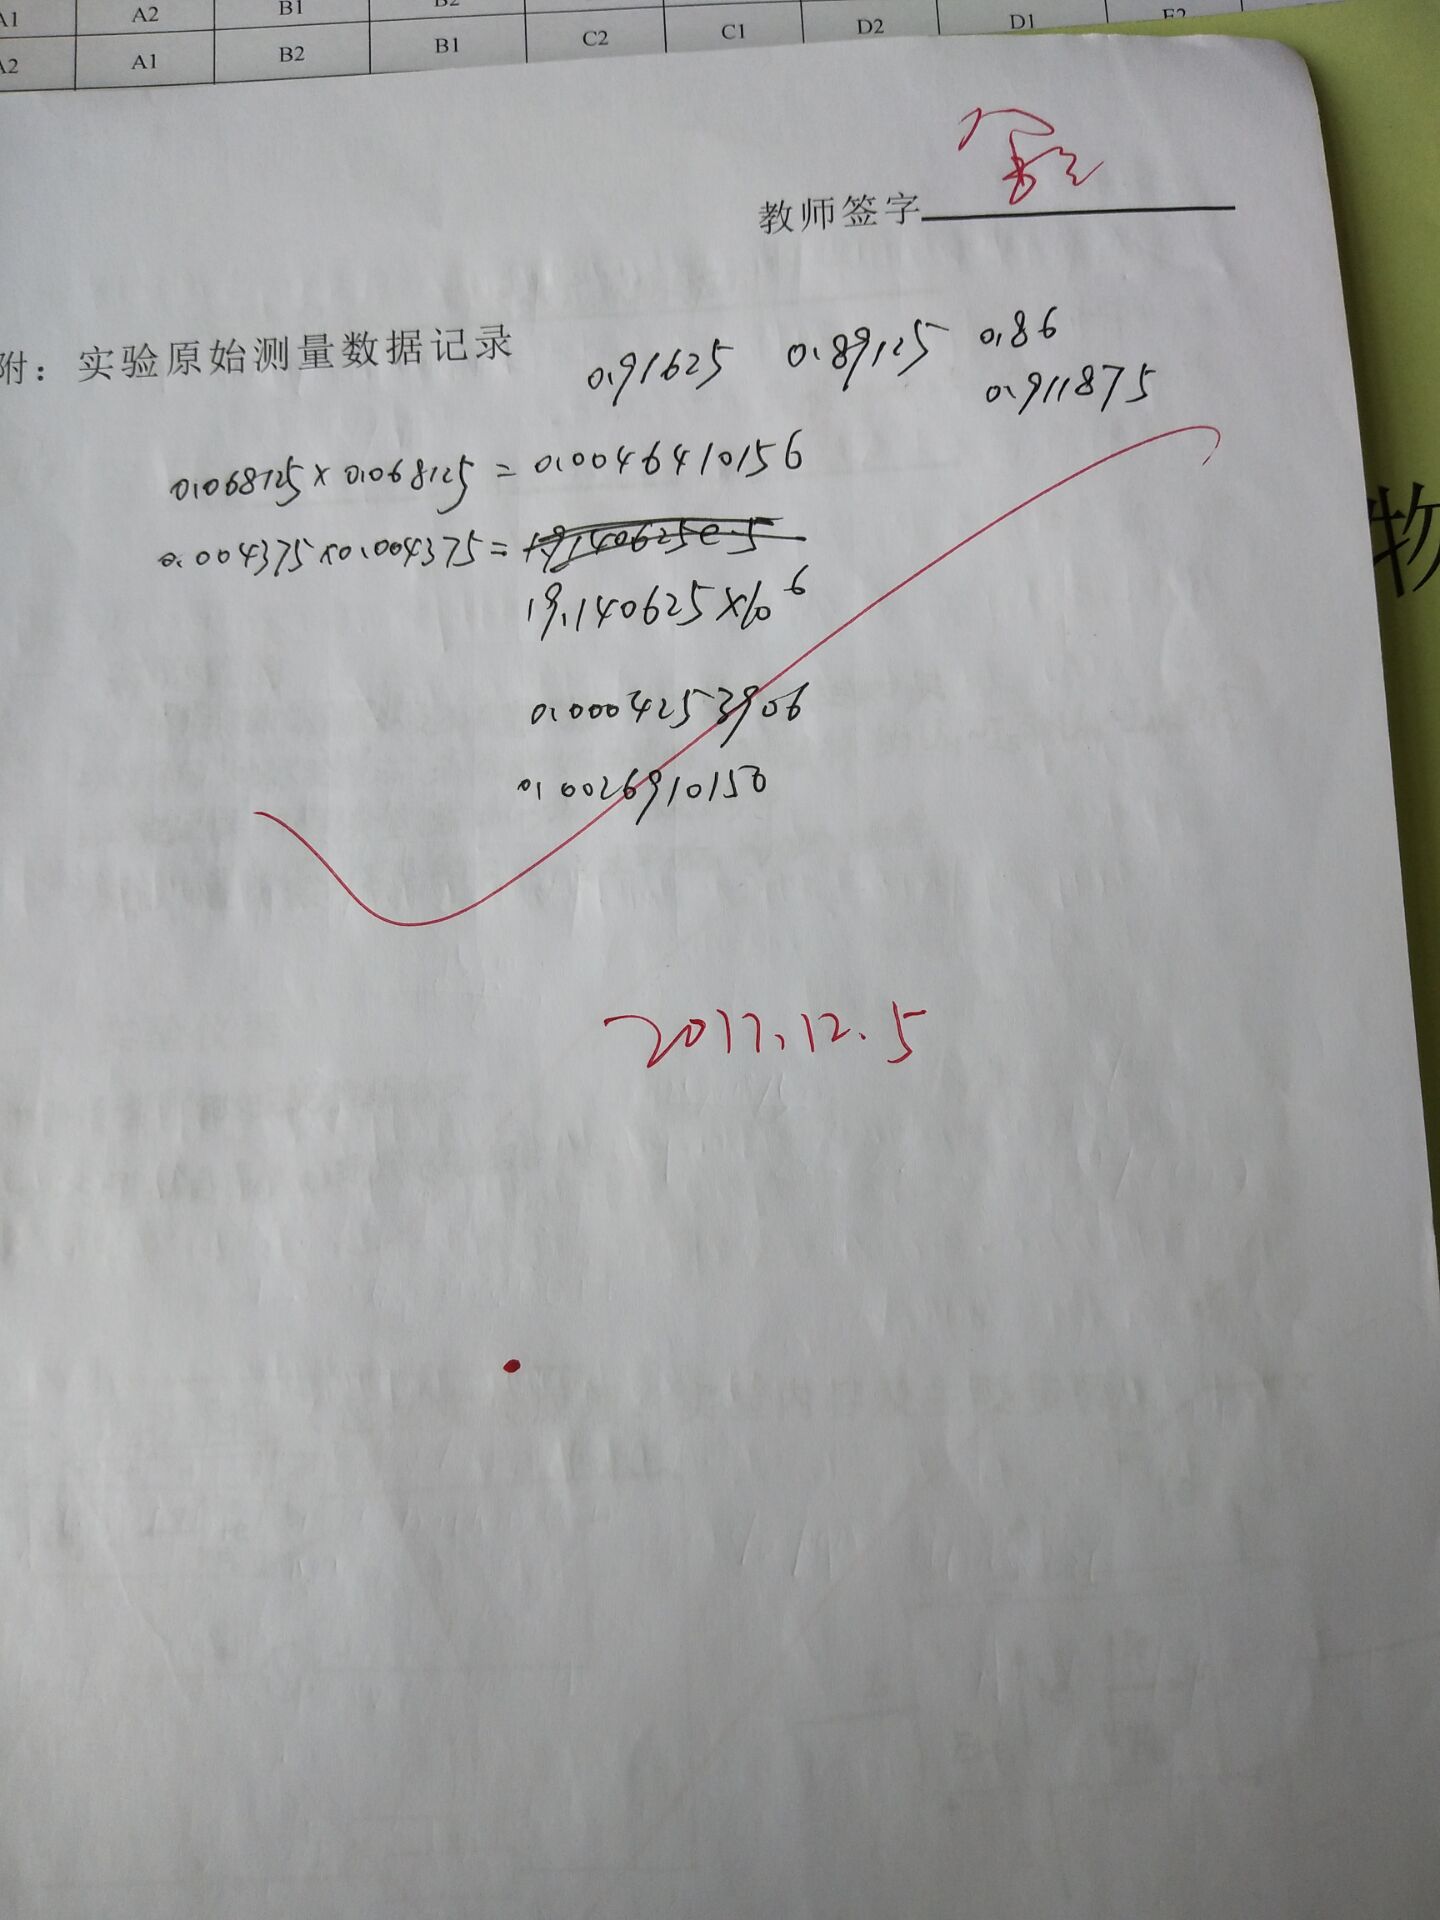 A1 A2 B1 B2
A2 A1 B2 B1 C2 C1 D2 D1 E2
教师签字
附：实验原始测量数据记录
0.91625 0.89125 0.86
0.911875
0.068125×0.068125=0.0046410156
0.004375×0.004375=
19.140625×10 6
0.0004253906
0.0026910156
2017.12.5
物